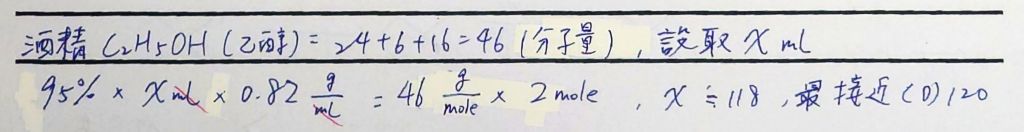 酒精 C₂H₅OH (乙醇) = 24+6+16=46 (分子量), 設取 X ml
95% × X ml × 0.82 g/mL = 46 g/mole × 2 mole, X ≒ 118, 最接近 (D) 120